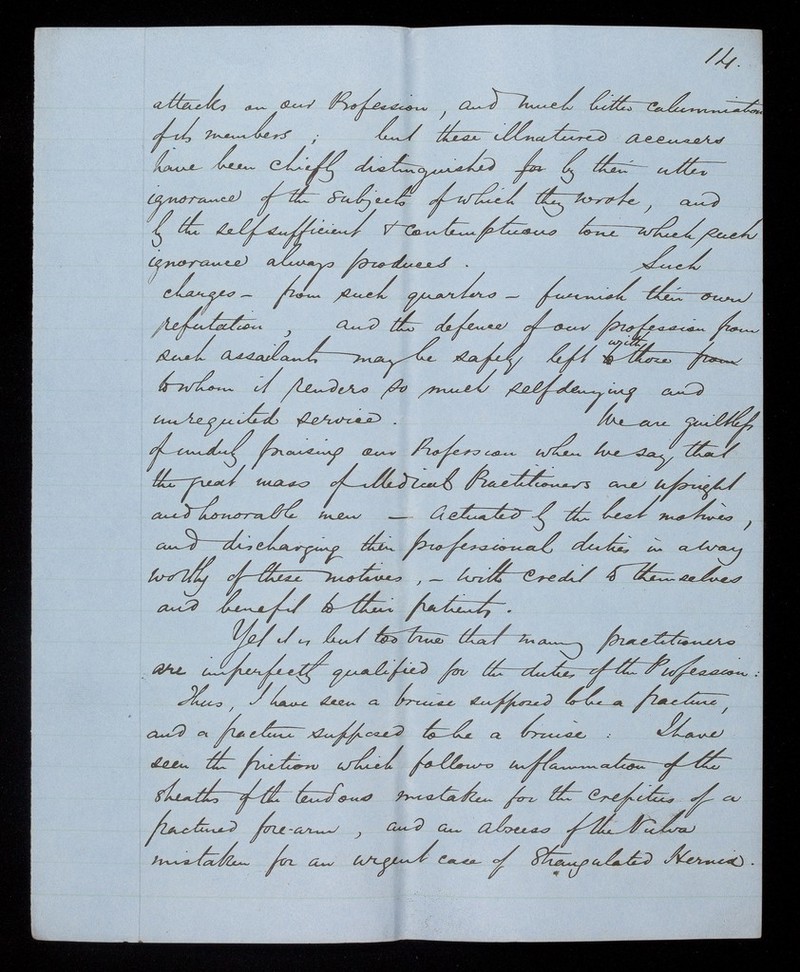 14.
attacks on our Profession, and much bitter calumniation
of its members ; but these illnatured accusers
have been chiefly distinguished for by their utter
ignorance of the subjects of which they wrote, and
by the selfsufficient & contemptuous tone which such
ignorance always produces. Such
charges – from such quarters – furnish their own
refutation, and the defence of our profession from
such assailants may be safely left to with those from
to whom it renders so much selfdenying and
unrequited service. We are guiltless
of unduly praising our Profession when we say, that
the great mass of Medical Practitioners are upright
and honorable men – actuated by the best motives,
and discharging their professional duties in a way
worthy of these motives, – with credit to themselves
and benefit to their patients.
Yet it is but too true that many practitioners
are imperfectly qualified for the duties of the Profession:
Thus, I have seen a bruise supposed to be a fracture,
and a fracture supposed to be a bruise : I have
seen the friction which follows inflammation of the
sheaths of the tendons mistaken for the crepitus of a
fractured fore-arm, and an abscess of the Vulva
mistaken for an urgent case of Strangulated Hernia.